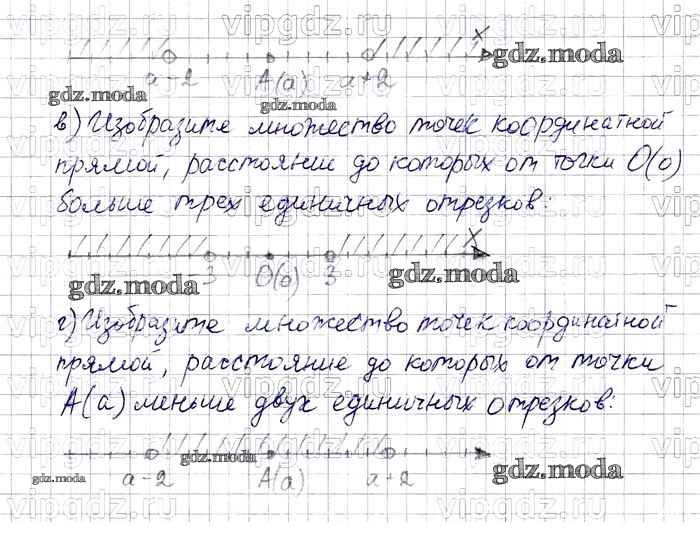 x
a-2 A(a) a+2
в) Изобразите множество точек координатной
прямой, расстояние до которых от точки O(o)
больше трех единичных отрезков:
x
3 O(o) 3
г) Изобразите множество точек координатной
прямой, расстояние до которых от точки
A(a) меньше двух единичных отрезков:
a-2 A(a) a+2
gdz.moda
gdz.moda
gdz.moda
gdz.moda
gdz.moda
gdz.moda
gdz.moda
gdz.moda
vipgdz.ru